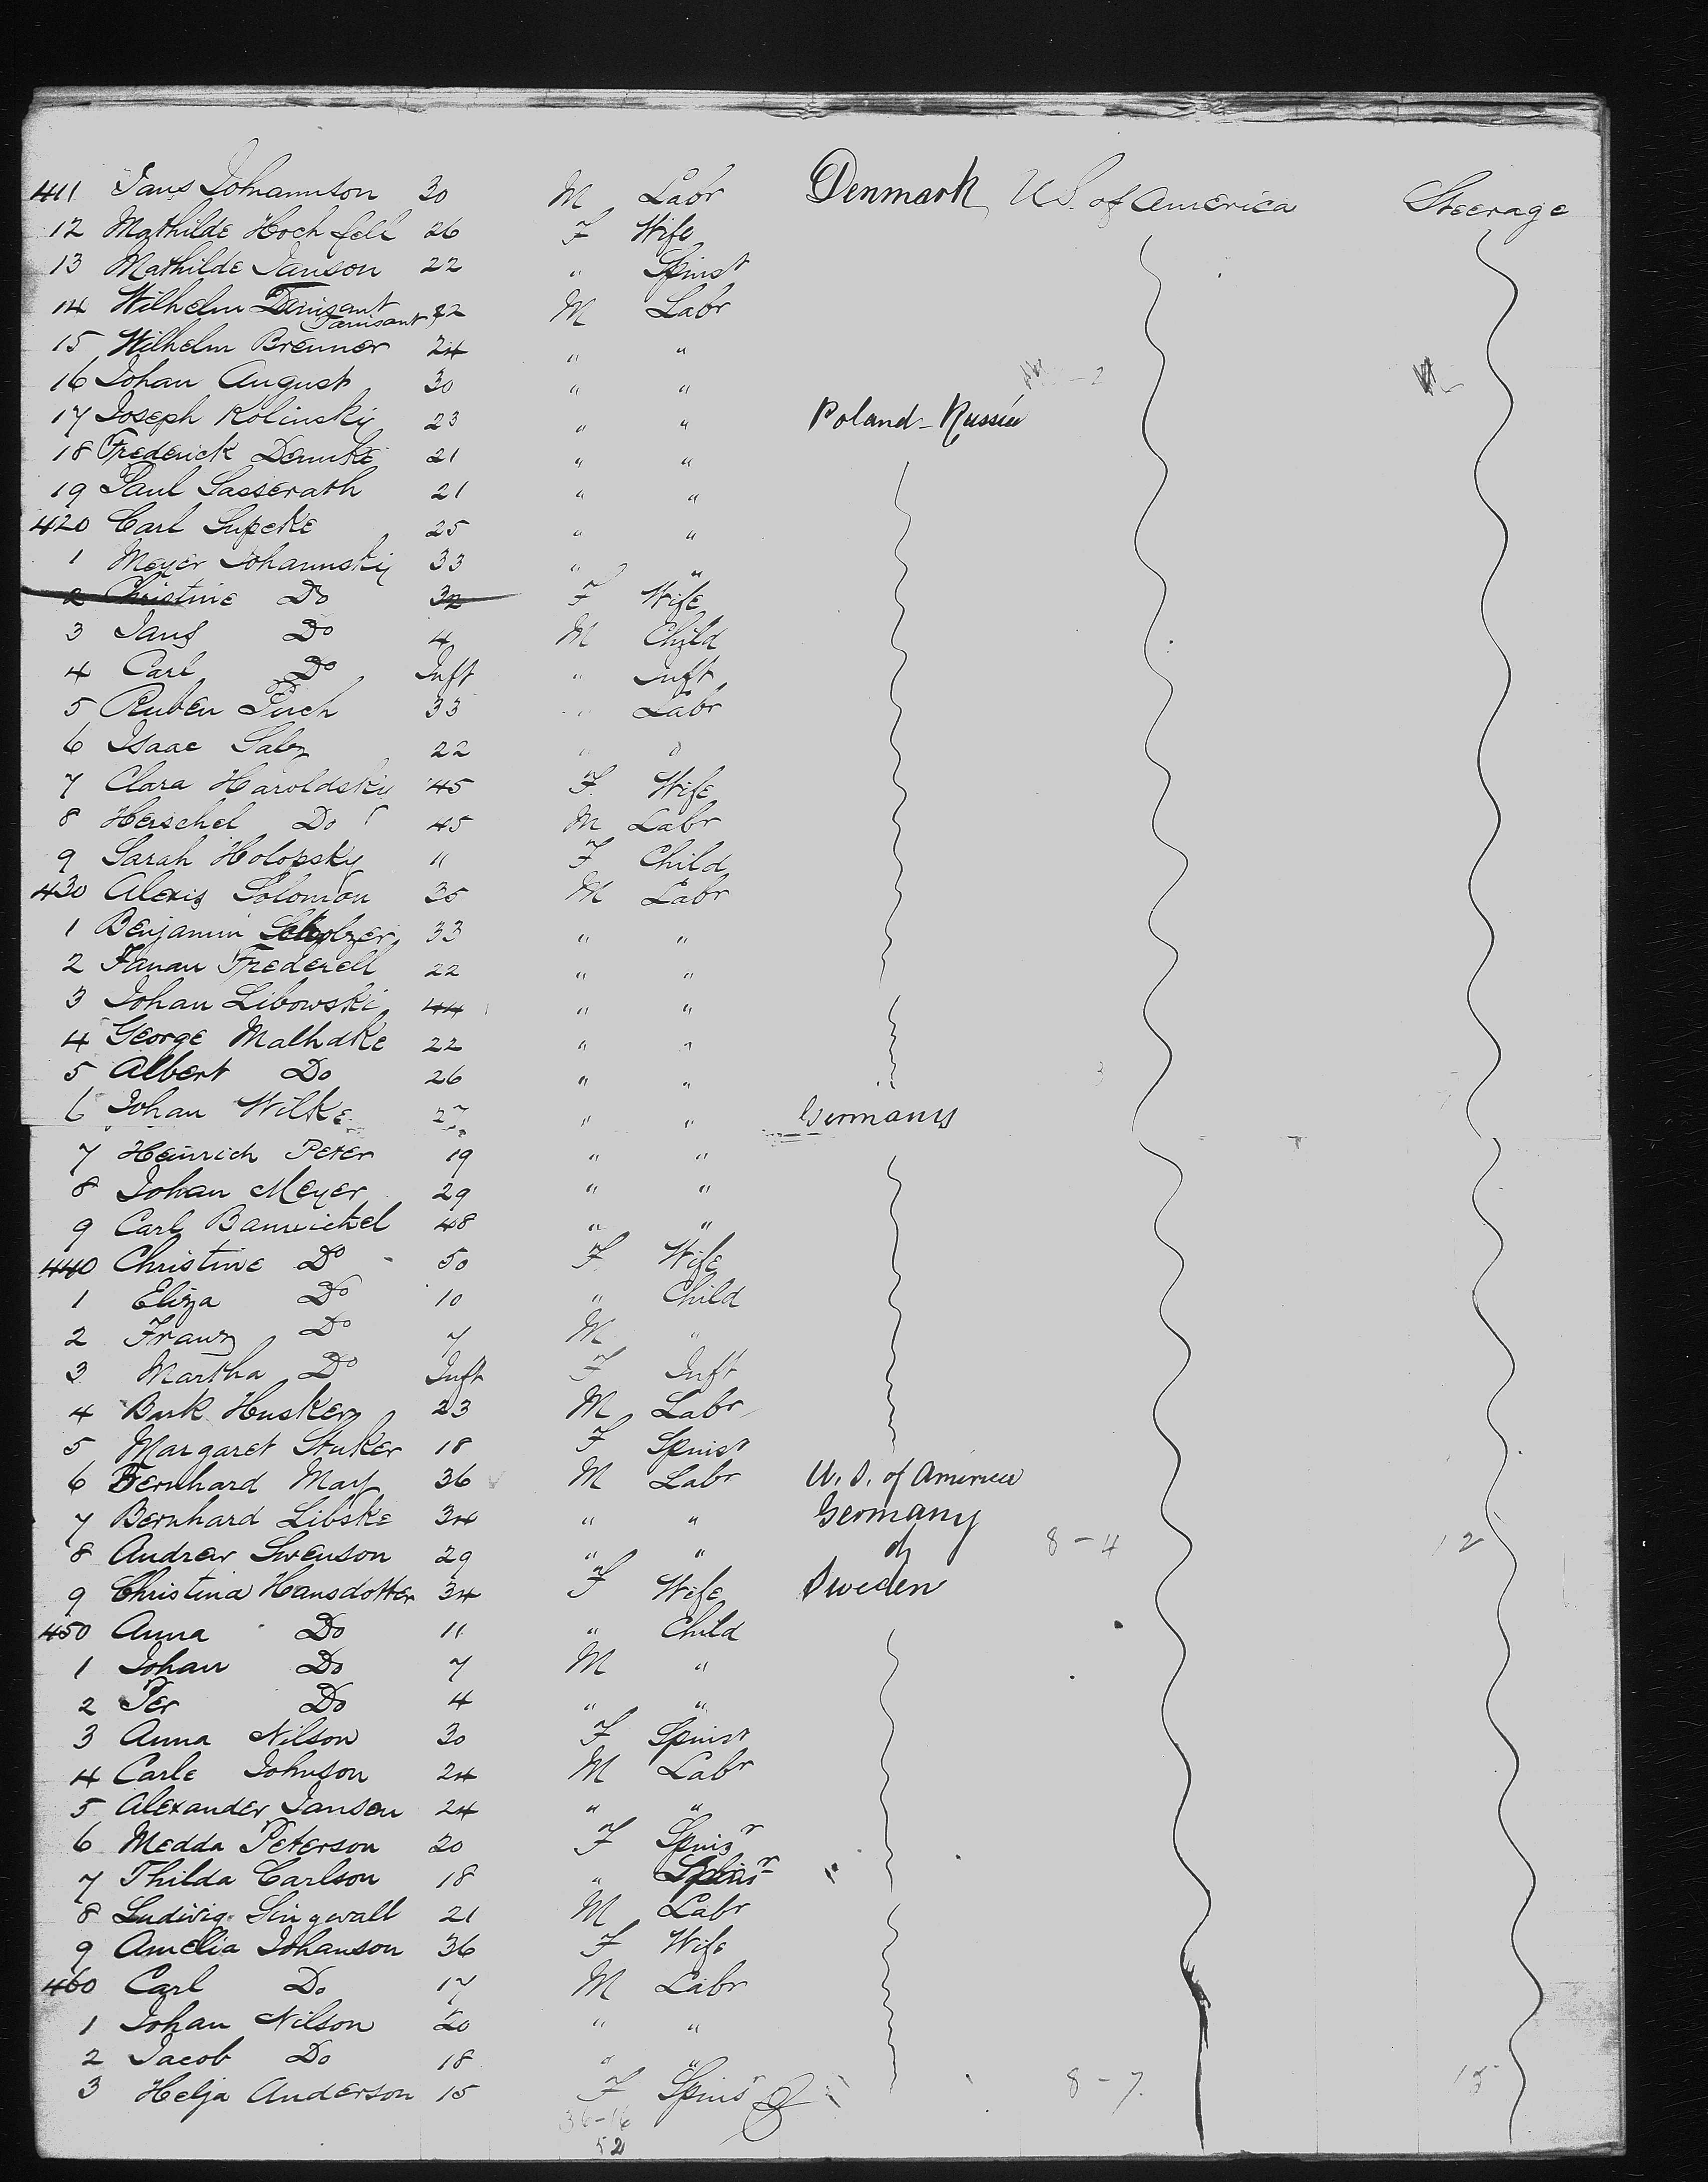 411 Jans Johannson 30 M Labr Denmark U.S. of America Steerage
12 Mathilde Hochfell 26 F Wife
13 Mathilde Janson 22 " Spinst
14 Wilhelm Tanisant 22 M Labr
Tanisant
15 Wilhelm Brenner 24 " "
16 Johan August 30 " "
17 Joseph Kolinsky 23 " " Poland-Russia
18 Frederick Demke 21 " "
19 Paul Sasserath 21 " "
420 Carl Lupcke 25 " "
1 Meyer Johannsky 33 " "
2 Christine Do 32 F Wife
3 Jans Do 4 M Child
4 Carl Do Inft " Inft
5 Ruben 33 " Labr
6 Isaac Salz 22 " "
7 Clara Haroldsky 45 F Wife
8 Herschel Do 45 M Labr
9 Sarah Holopsky 11 F Child
430 Alexis Solomon 35 M Labr
1 Benjamin 33 " "
2 Frederell 22 " "
3 Johan Libowski 44 " "
4 George Malhdke 22 " "
5 Albert Do 26 " "
6 Johan Wilke 27 " " Germany
7 Heinrich Peter 19 " "
8 Johan Meyer 29 " "
9 Carl Banwichel 48 " "
440 Christine Do 50 F Wife
1 Eliza Do 10 " Child
2 Franz Do 7 M "
3 Martha Do Inft F Inft
4 Bark Husker 23 M Labr
5 Margaret Stuker 18 F Spinst
6 Bernhard May 36 M Labr U.S. of America
7 Bernhard Libske 34 " " Germany
8 Andrew Swenson 29 " " do 8-4 12
9 Christina Hansdotter 34 F Wife Sweden
450 Anna Do 11 " Child
1 Johan Do 7 M "
2 Per Do 4 " "
3 Anna Nilson 30 F Spinst
4 Carle Johnson 24 M Labr
5 Alexander Jansen 24 " "
6 Medda Peterson 20 F Spinsr
7 Thilda Carlson 18 " Spinsr
8 Ludwig Singwall 21 M Labr
9 Amelia Johanson 36 F Wife
460 Carl Do 17 M Labr
1 Johan Nilson 20 " "
2 Jacob Do 18 " "
3 Helja Anderson 15 F Spins 8-7 15
36-16
52